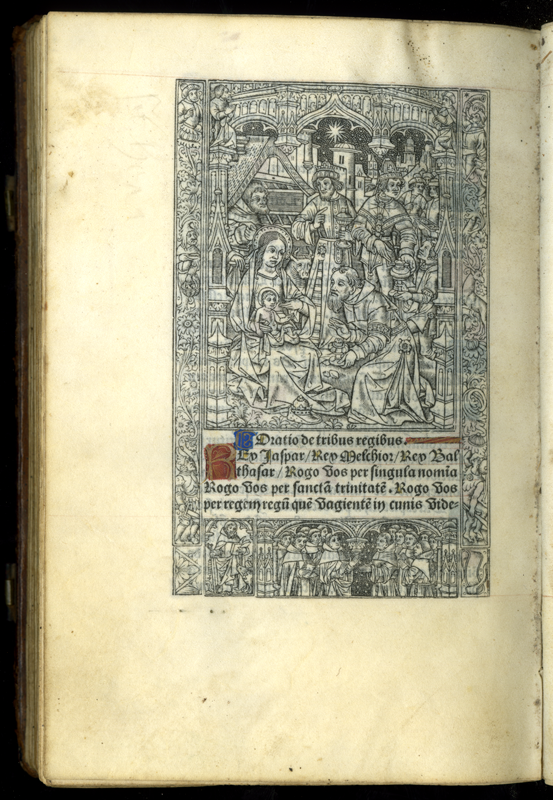 Oratio de tribus regibus.
REy Jaspar/Rey Melchior/Rey Bal
thasar/Rogo vos per singula noīa
Rogo vos per sanctā trinitatē. Rogo vos
per regem regū quē vagientē in cunis vide-